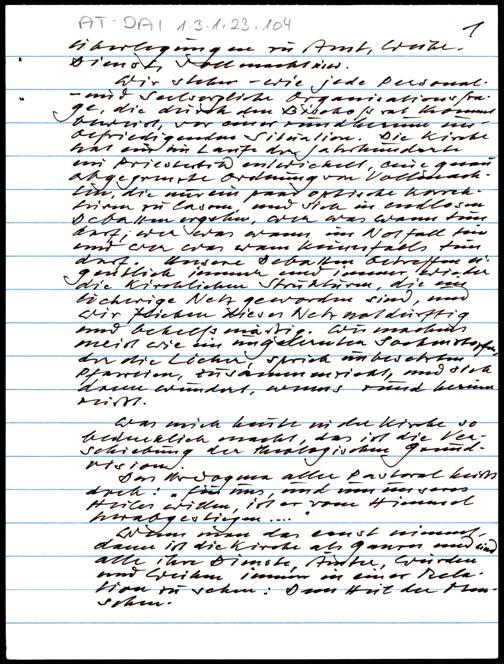 AT-DAI 1.3.1.23.104
1
Überlegungen zu Amt, Weihe,
Dienst, Vollmacht usw.
Wir stehen - wie jede Personal-
- und seelsorgliche Organisationsfra-
ge, die durch den Bischofsrat kommt
beweist, vor einer rund herum un-
befriedigenden Situation. Die Kirche
hat im Laufe der Jahrhunderte
ein Priesterbild entwickelt, eine genau
abgegrenzte Ordnung von Vollmach-
ten, die nur ein paar optische Korrek-
turen zu lassen, und sich in endlosen
Debatten ergehen, wer was wann tun
darf, wer was wann im Notfall tun
und wer was wann keinesfalls tun
darf. Unsere Debatten betreffen ei-
gentlich immer und immer wieder
die kirchlichen Strukturen, die ein
löcherige Netz geworden sind, und
wir flicken dieses Netz notdürftig
und behelfsmäßig. Wir machens
meist wie ein ungelernter
der die Löcher, sprich unbesetzten
Pfarreien, zusammenzieht, und sich
dann wundert, wenns rund herum
reißt.
Was mich heute in der Kirche so
bedenklich macht, das ist die Ver-
schiebung der theologischen Grund-
vision.
Das Urdogma aller Pastoral heißt
doch: "Für uns, und um unseres
Heiles willen, ist er vom Himmel
herabgestiegen...."
Wenn man das ernst nimmt,
dann ist die Kirche als Ganzes und sind
alle ihre Dienste, Ämter, Würden
und Weihen immer in einer Rela-
tion zu sehen: Dem Heil der Men-
schen.